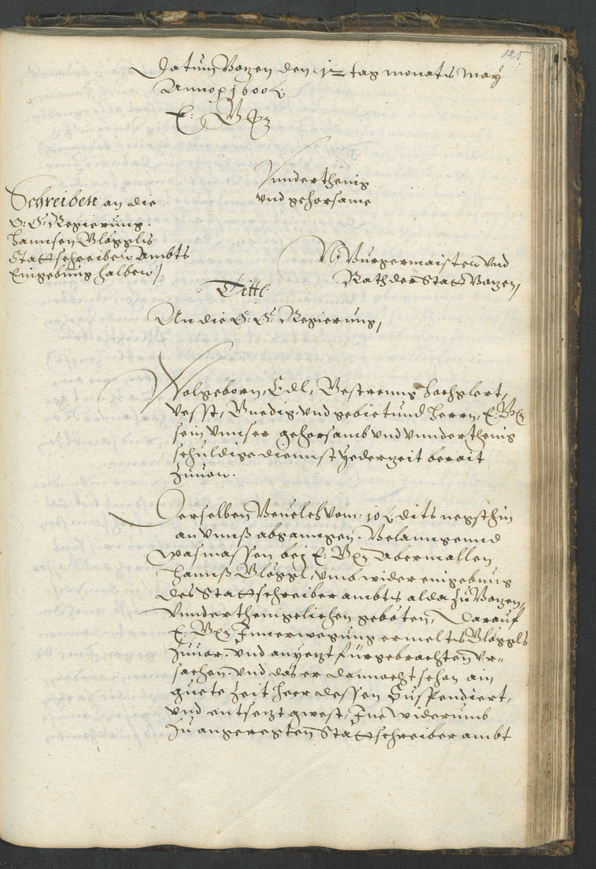 125
Datum Bozen den 12 tag monats May
Anno 1600
E: Gn
Vnderthenig
vnd gehorsame
Schreiben an die
O: Ö: Regierung.
Hannsen Gläggls
Stattschreiber Ambts
Eingebung halber /.
N: Burgermaister vnd
Rath der Statt Bozen,
Tittl
An die O: Ö: Regierung,
Wolgeborn, Edl, Gestreng hochglert,
Vesst, Gnedig vnd gebietund Herrn, E: Gn
sein vnnser gehorsamb vnd vnnderthenig
schuldige diennst yederzeit berait
zuuor.
Derselben Beuelch vom: 10 dits negsthin
an vnnß abganngen. Belanngennd
wasmassen bey E: Gn abermallen
Hannß Gläggl, vmb wider eingebung
des Stattschreiber ambts alda zu Bozen
vnnderthenigclichen gebeten, Darauf
E: Gn In erwegung ermelts Gläggls
zuuor vnd an yezt fürgebrachten Vr-
sachen. vnd das er dannocht schon ain
guete zeit heer dessen Suspendiert,
vnd entsezt gwest, Ine widerumb
zu angeregten Stattschreiber ambt